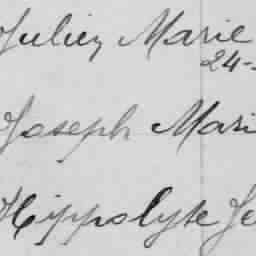 Julien Marie
24-
Joseph Mari
Hippolyte Je